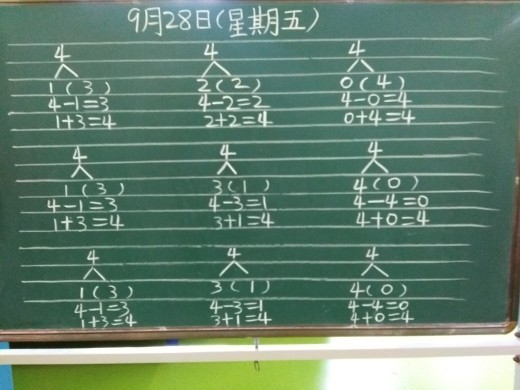 9月28日(星期五)
4 4 4
1(3) 2(2) 0(4)
4-1=3 4-2=2 4-0=4
1+3=4 2+2=4 0+4=4
4 4 4
1(3) 3(1) 4(0)
4-1=3 4-3=1 4-4=0
1+3=4 3+1=4 4+0=4
4 4 4
1(3) 3(1) 4(0)
4-1=3 4-3=1 4-4=0
1+3=4 3+1=4 4+0=4